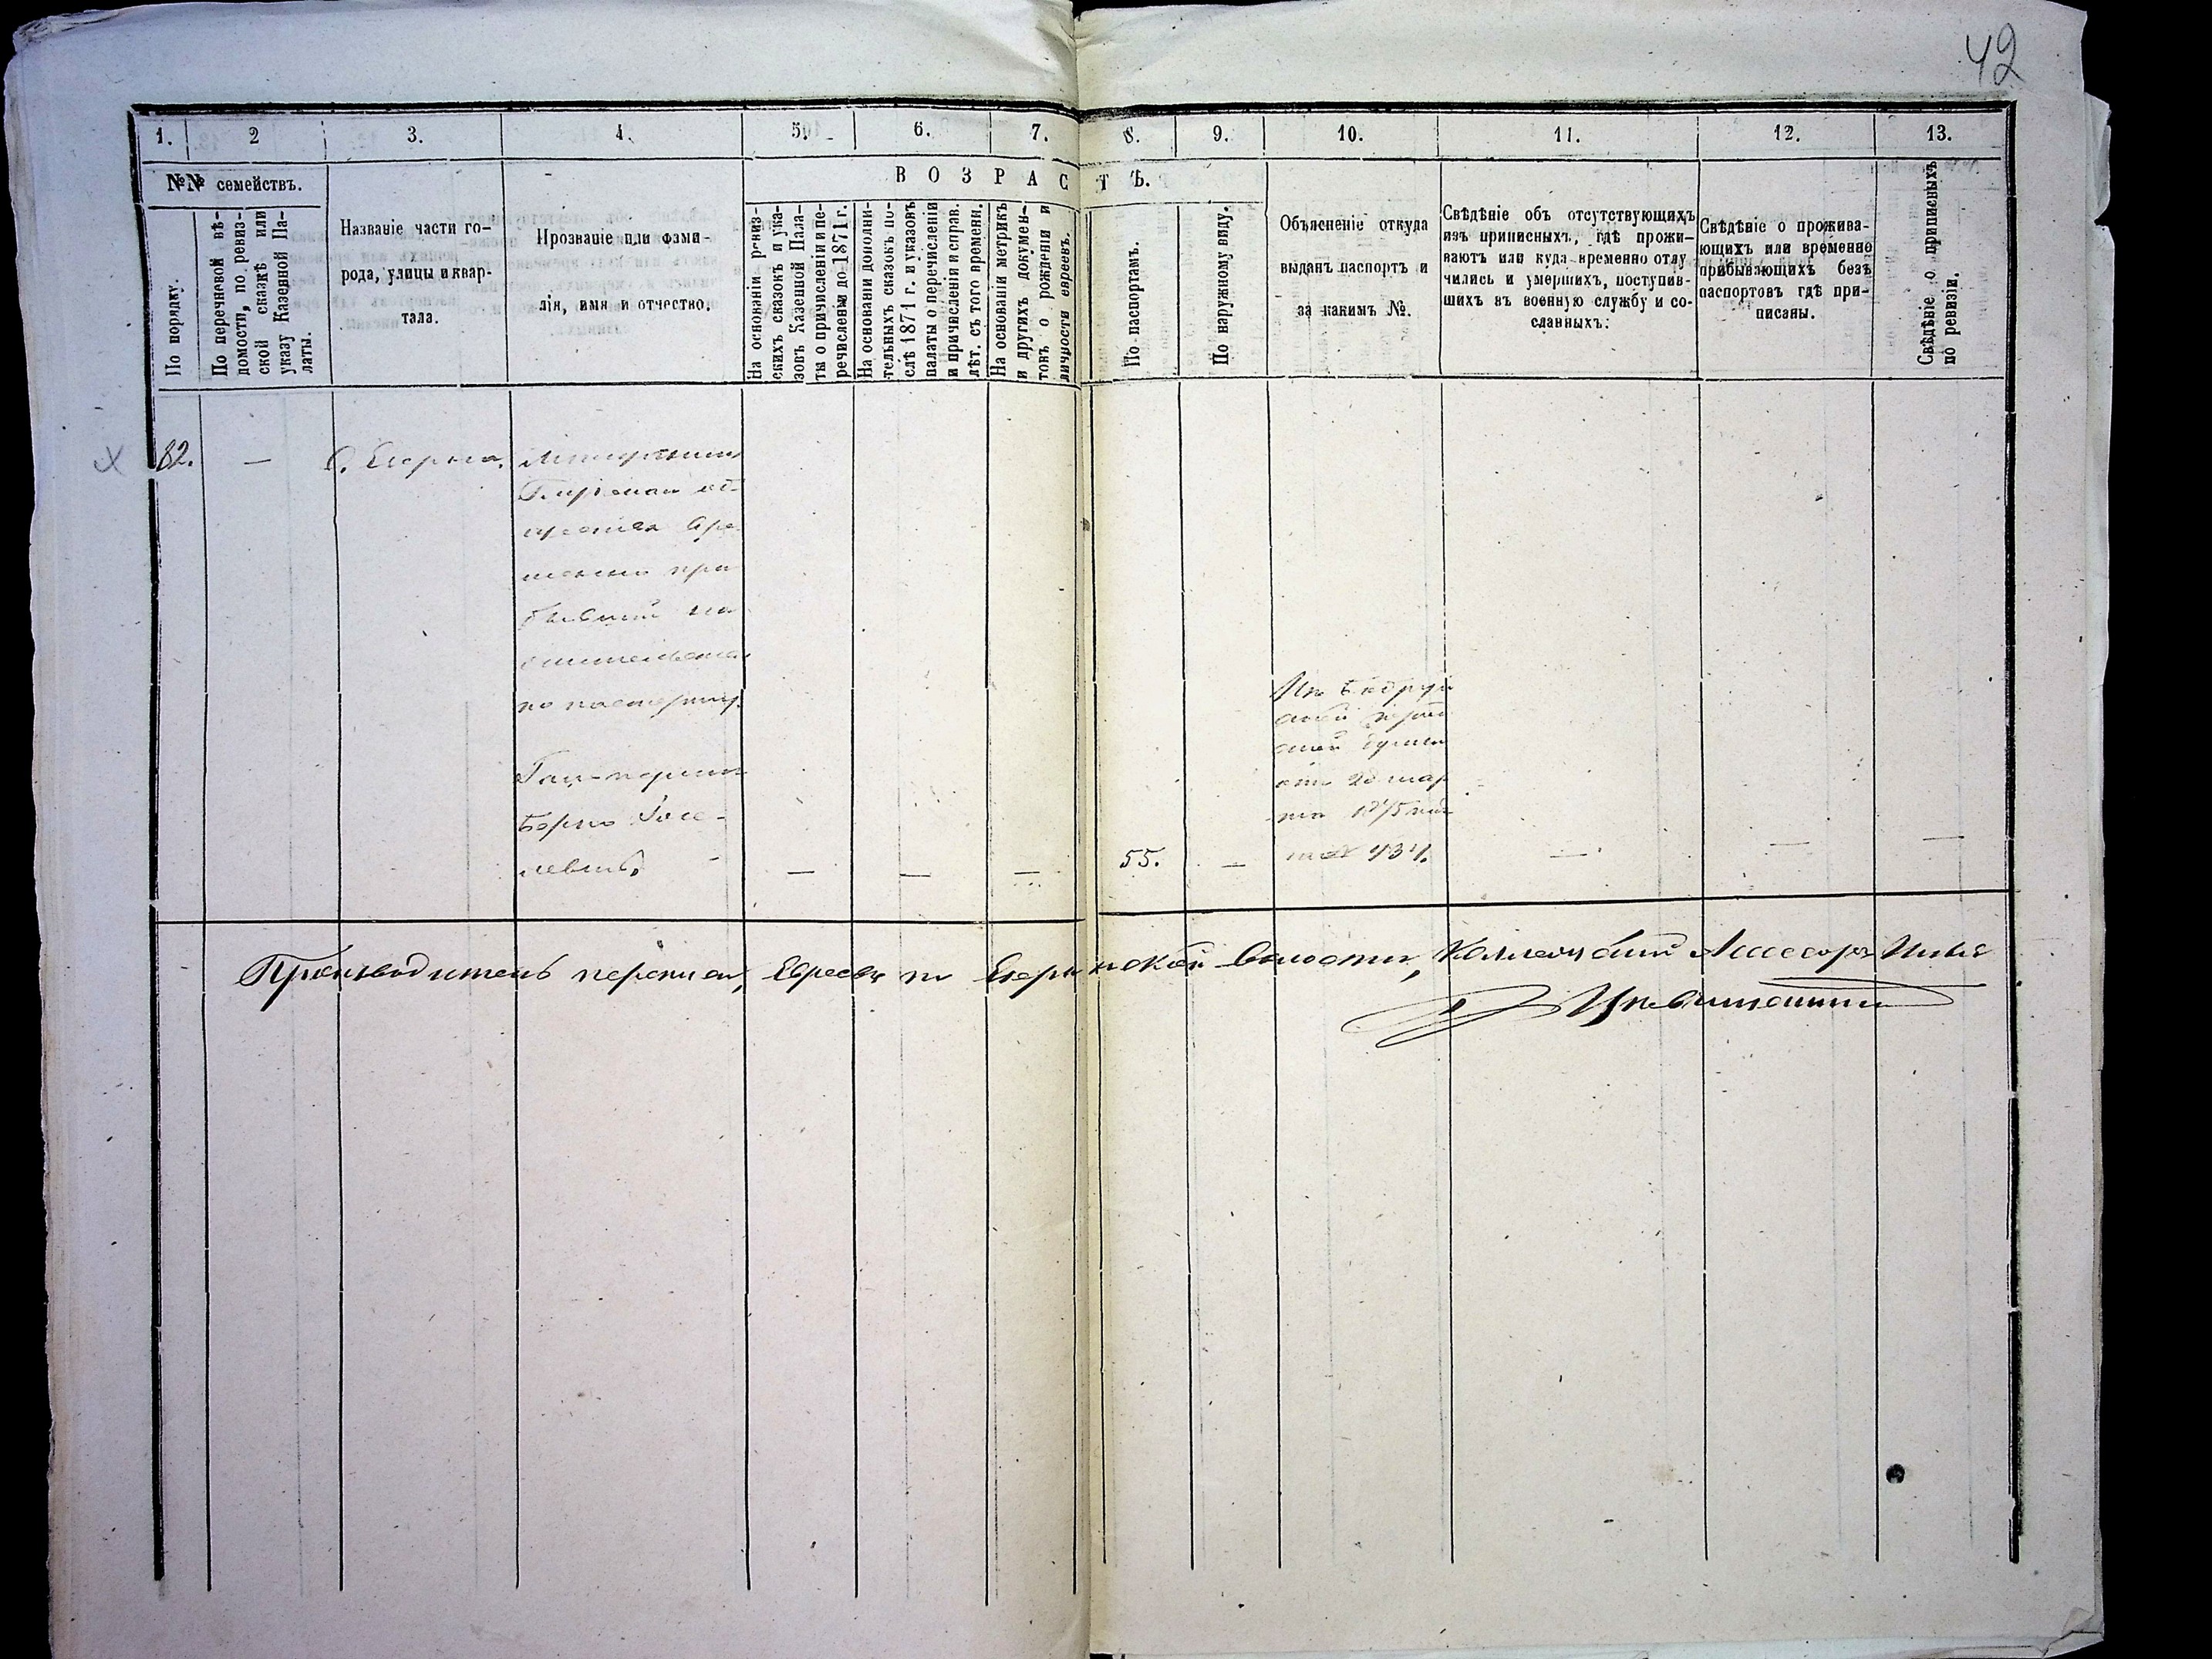 42
1. 2 3. 4. 5. 6. 7. 8. 9. 10. 11. 12. 13.
№№ семействъ.
По порядку.
По перечневой вѣ-
домости, по ревиз-
ской сказкѣ или
указу Казенной Па-
латы.
Названіе части го-
рода, улицы и квар-
тала.
Прозваніе или фами-
лія, имя и отчество.
ВОЗРАСТЪ.
На основаніи ревиз-
скихъ сказокъ и ука-
зовъ Казенной Пала-
ты о причисленіи и пе-
речисленіи до 1871 г.
На основаніи дополни-
тельныхъ сказокъ по-
слѣ 1871 г. и указовъ
палаты о перечисленіи
и причисленіи и справ.
лѣт. съ того времени.
На основаніи метрикъ
и другихъ докумен-
товъ о рожденіи и
личности евреевъ.
По паспортамъ.
По наружному виду.
Объясненіе откуда
выданъ паспортъ и
за какимъ №.
Свѣдѣніе объ отсутствующихъ
изъ приписныхъ, гдѣ прожи-
ваютъ или куда временно отлу
чились и умершихъ, поступив-
шихъ въ военную службу и со-
сланныхъ:
Свѣдѣніе о прожива-
ющихъ или временно
прибывающихъ безъ
паспортовъ гдѣ при-
писаны.
Свѣдѣніе о приписныхъ
по ревизіи.
82. —
вре
менно при
бывшій на
жительство
по паспорту.
Берко Иосе-
левъ,
— — —
55. —
Изъ Бобруй
ской
ской думы
отъ 20 мар
та 1875 года
за № 431.
— — —
Производитель переписи, Евреевъ по Езерынской волости, Коллежскій Ассесоръ